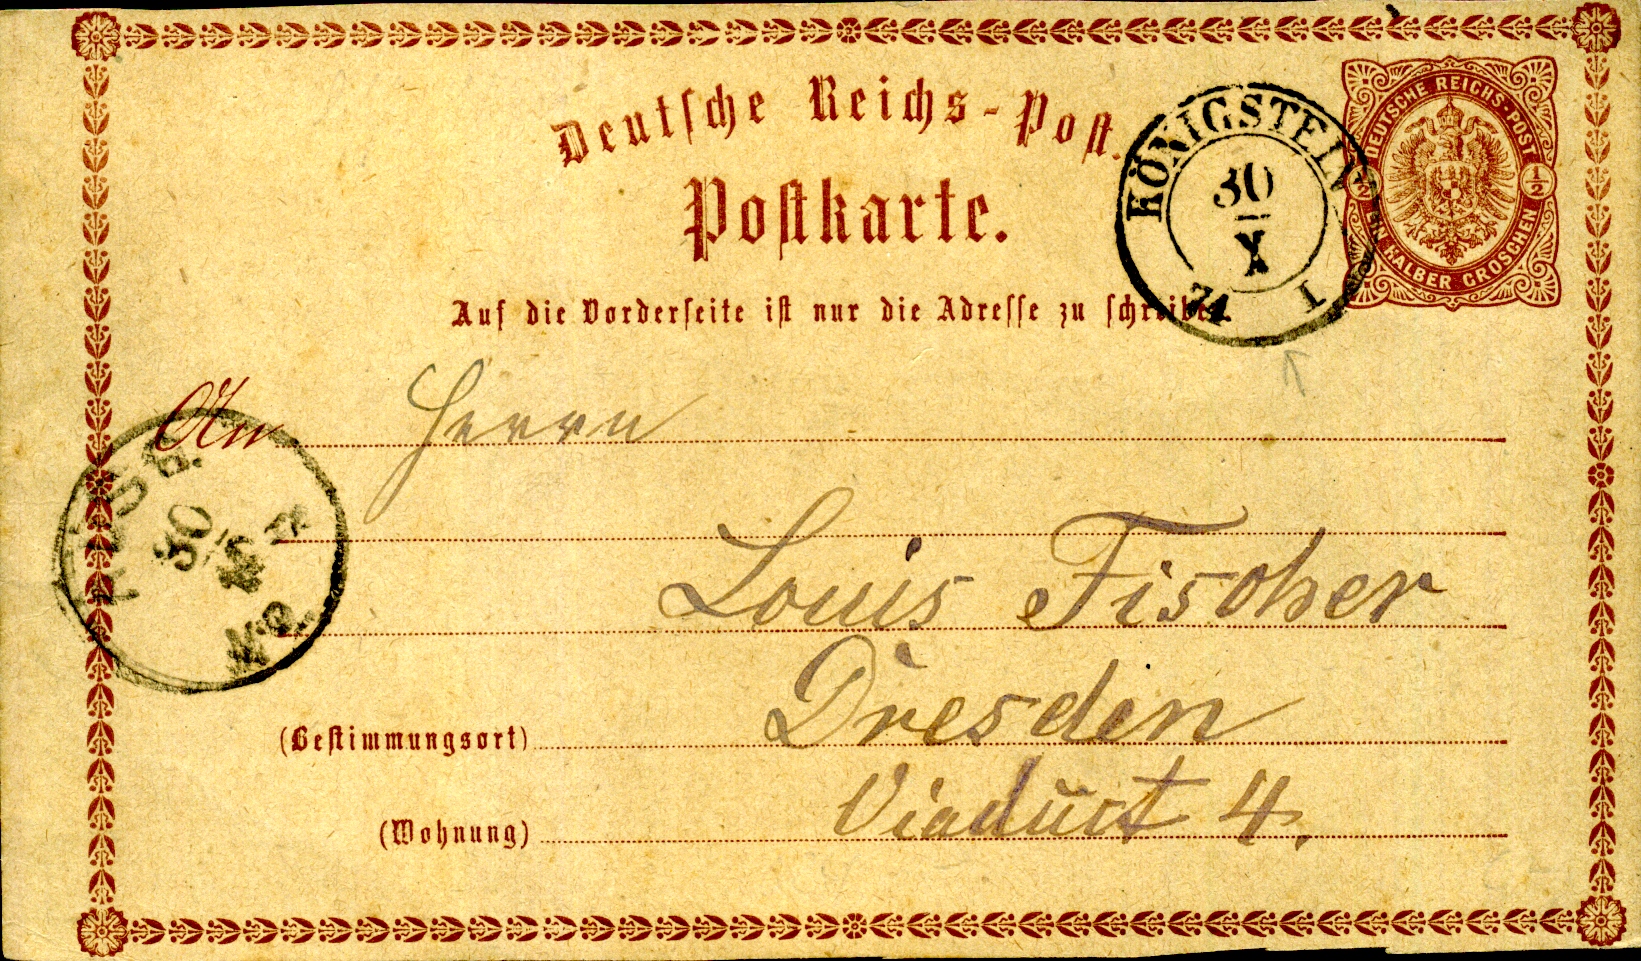 Deutsche Reichs-Post.
Postkarte.
Auf die Vorderseite ist nur die Adresse zu schreiben.
DEUTSCHE REICHS-POST
1/2 1/2
EIN HALBER GROSCHEN
KÖNIGSTEIN
30
X
74 I
An Herrn
Louis Fischer
(Bestimmungsort) Dresden
(Wohnung) Viaduct 4.
30